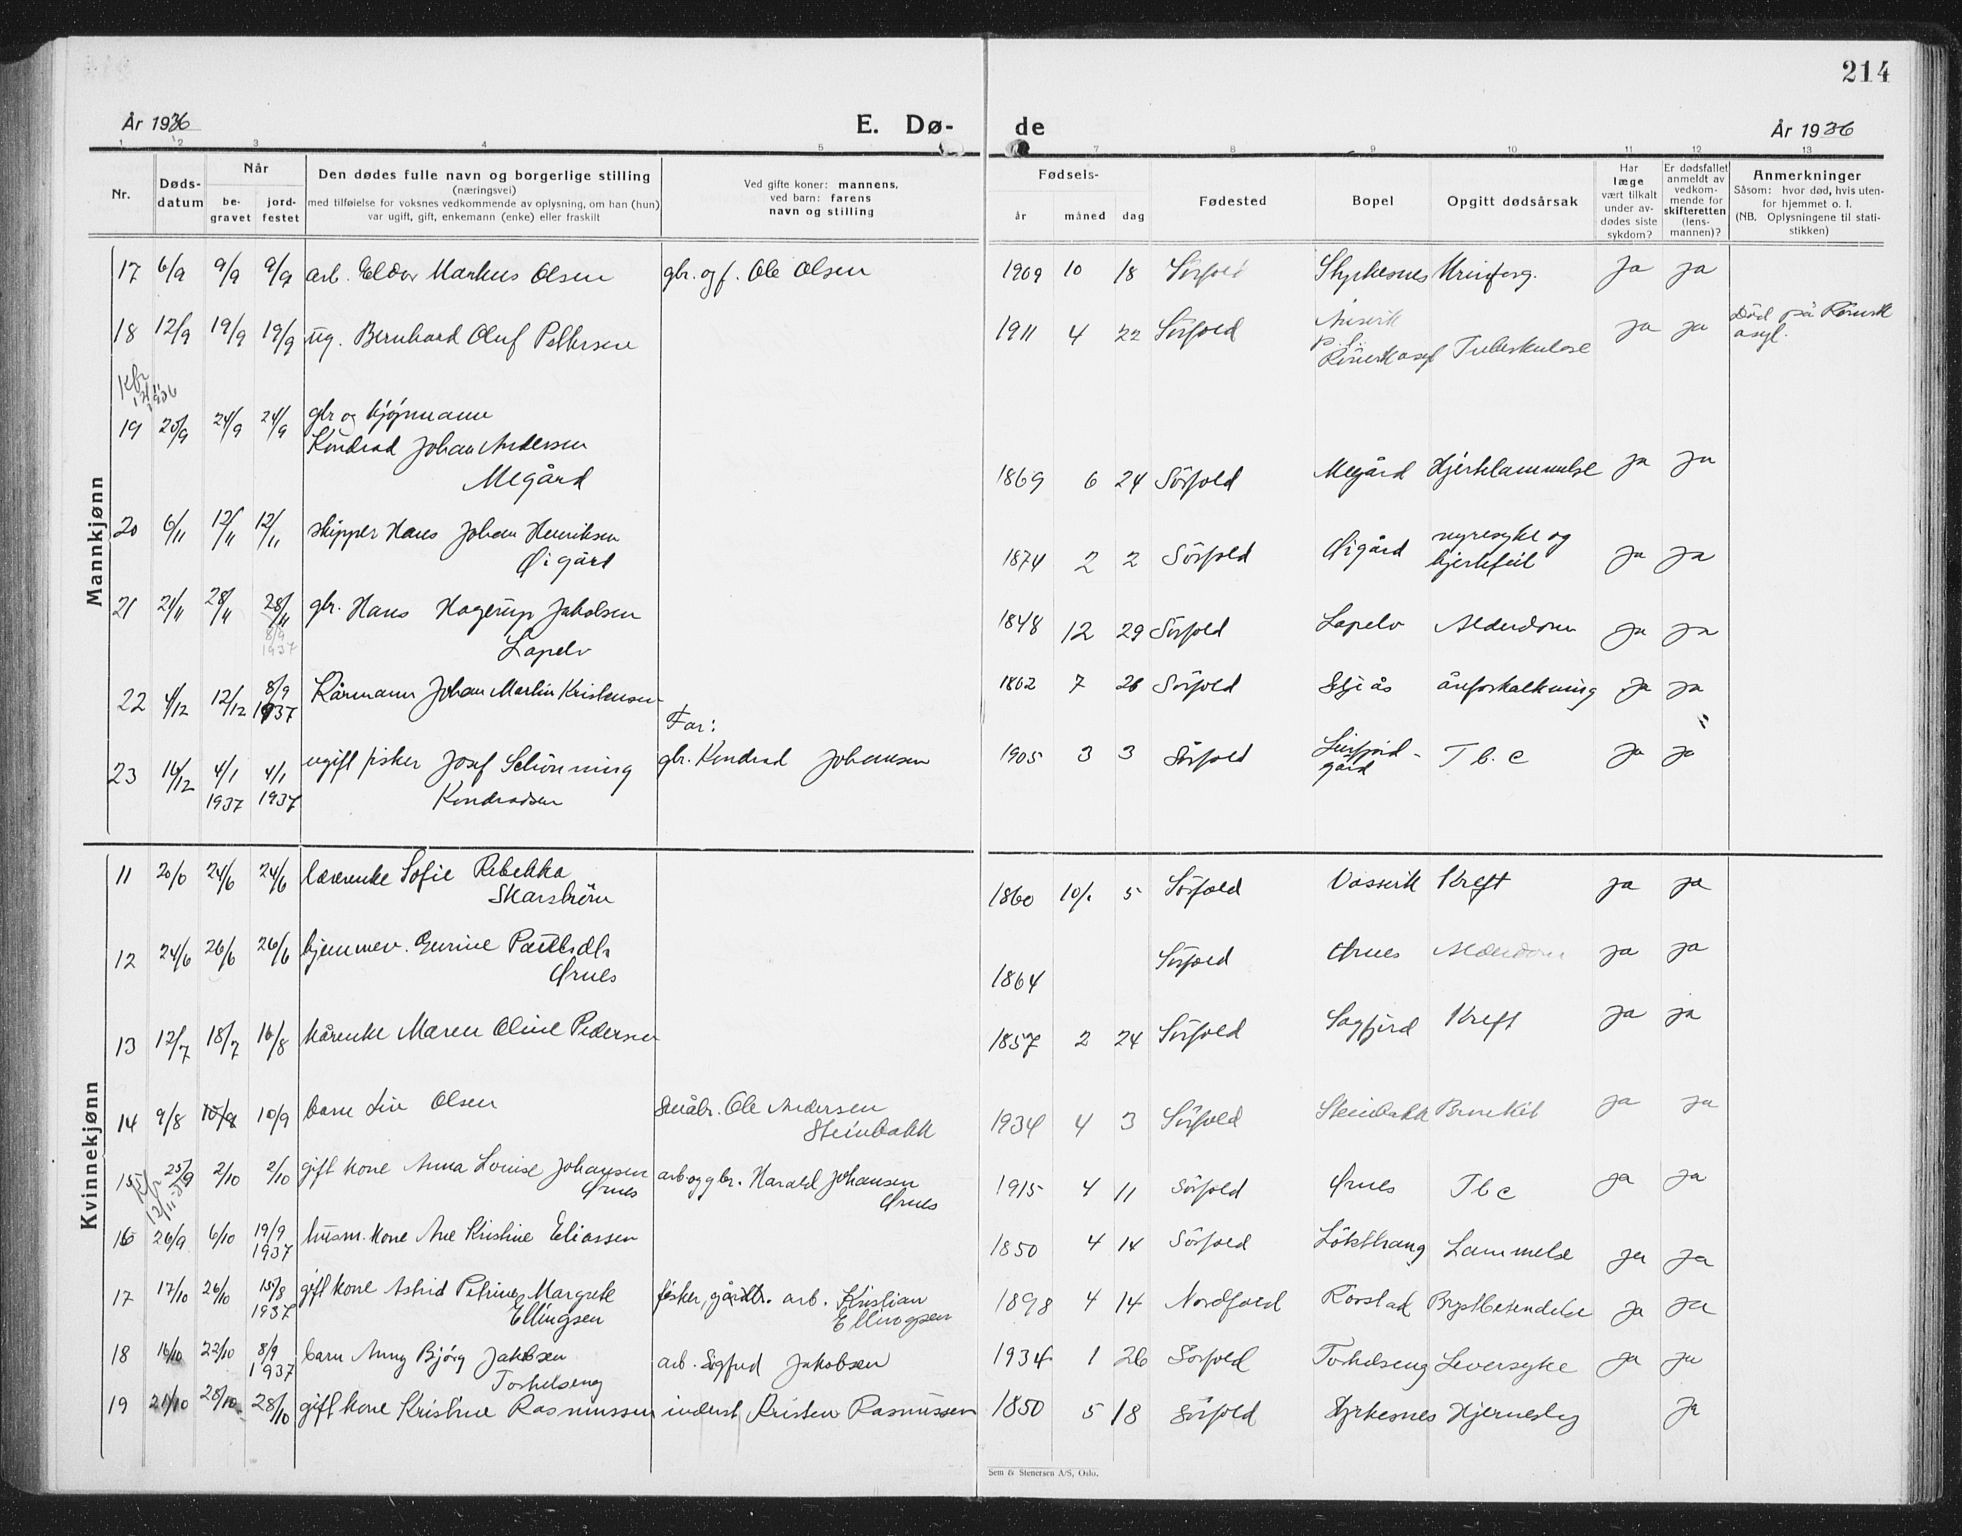 214
År 1936
E. Dø-
de
År 1936
1 2 3 4 5 7 8 9 10 11 12 13
Nr.
Døds-
datum
Når
be-
gravet
jord-
festet
Den dødes fulle navn og borgerlige stilling
(næringsvei)
med tilføielse for voksnes vedkommende av oplysning, om han (hun)
var ugift, gift, enkemann (enke) eller fraskilt
Ved gifte koner: mannens,
ved barn: farens
navn og stilling
Fødsels-
år måned dag
Fødested
Bopel
Opgitt dødsårsak
Har
læge
vært tilkalt
under av-
dødes siste
sykdom?
Er dødsfallet
anmeldt av
vedkom-
mende for
skifteretten
(lens-
mannen)?
Anmerkninger
Såsom: hvor død, hvis uten-
for hjemmet o. l.
(NB. Oplysningene til stati-
stikken)
Mannkjønn
17 6/9 9/9 9/9 arb. Eldor Markus Olsen gbr. og f. Ole Olsen 1909 10 18 Sörfold Styrkesnes Urinforg. Ja ja
18 12/9 19/9 19/9 ug. Bernhard Oluf Pettersen 1911 4 22 Sörfold Tuberkulose ja ja Död på Rönvik
asyl.
P. t.
Rönvik asyl
1936
19 20/9 24/9 24/9 gbr og
Kondrad Johan Andersen
Megård
1869 6 24 Sörfold Megård Hjertelammelse ja ja
20 6/11 12/11 12/11 skipper Hans Johan Henriksen
Øigård
1874 2 2 Sörfold Øigård nyresyke og
hjertefeil ja ja
21 21/11 28/11 28/11 gbr. Hans Hagerup Jakobsen
8/9
1937
Lapelv
1848 12 29 Sörfold Lapelv Alderdom ja ja
22 4/12 12/12 8/9
1937 Kårmann Johan Martin Kristensen
1862 7 26 Sörfold åreforkalkning ja ja
23 16/12 4/1
1937 4/1
1937 ugift fisker Josef Schönning
Kondradsen
Far:
gbr. Kondrad Johansen
1905 3 3 Sörfold Leirfjord-
gård T. b. c ja ja
Kvinnekjønn
11 20/6 24/6 24/6 Sofie Rebekka
Skarström
1860 10/. 5 Sörfold Vassvik Kreft ja ja
12 24/6 26/6 26/6 hjemmev. Gurine
Ørnes
1864 Sörfold Ørnes Alderdom ja ja
13 12/7 18/7 16/8 kårenke Maren Oline Pedersen
1857 2 24 Sörfold Sagfjord Kreft ja ja
14 9/8 10/8 10/9 barn Liv Olsen Småbr. Ole Andersen
Steinbakk
1934 4 3 Sörfold Steinbakk ja ja
15 25/9 2/10 2/10 gift kone Anna Lovise Johansen
Ørnes
arb. og gbr. Harald Johansen
Ørnes
1915 4 11 Sörfold Ørnes Tbc ja ja
16 26/9 6/10 19/9
1937 husm. kone Ane Kristine Eliassen
1850 4 14 Sörfold Lammelse ja ja
17 17/10 26/10 15/8
1937 gift kone Astrid Petrine Margrete
Ellingsen
fisker, gårdbr. arb. Kristian
Ellingsen
1898 4 14 Nordfold Rörstad Brystbetendelse ja ja
18 16/10 22/10 8/9
1937 barn Anny Bjørg Jakobsen
Torkelseng
arb. Sigfred Jakobsen
1934 1 26 Sörfold Torkelseng Leversyke ja ja
19 21/10 28/10 28/10 gift kone Kristine Rasmussen inderst Kristen Rasmussen
1850 5 18 Sörfold Styrkesnes Hjerneslag ja
Sem & Stenersen A/S, Oslo.